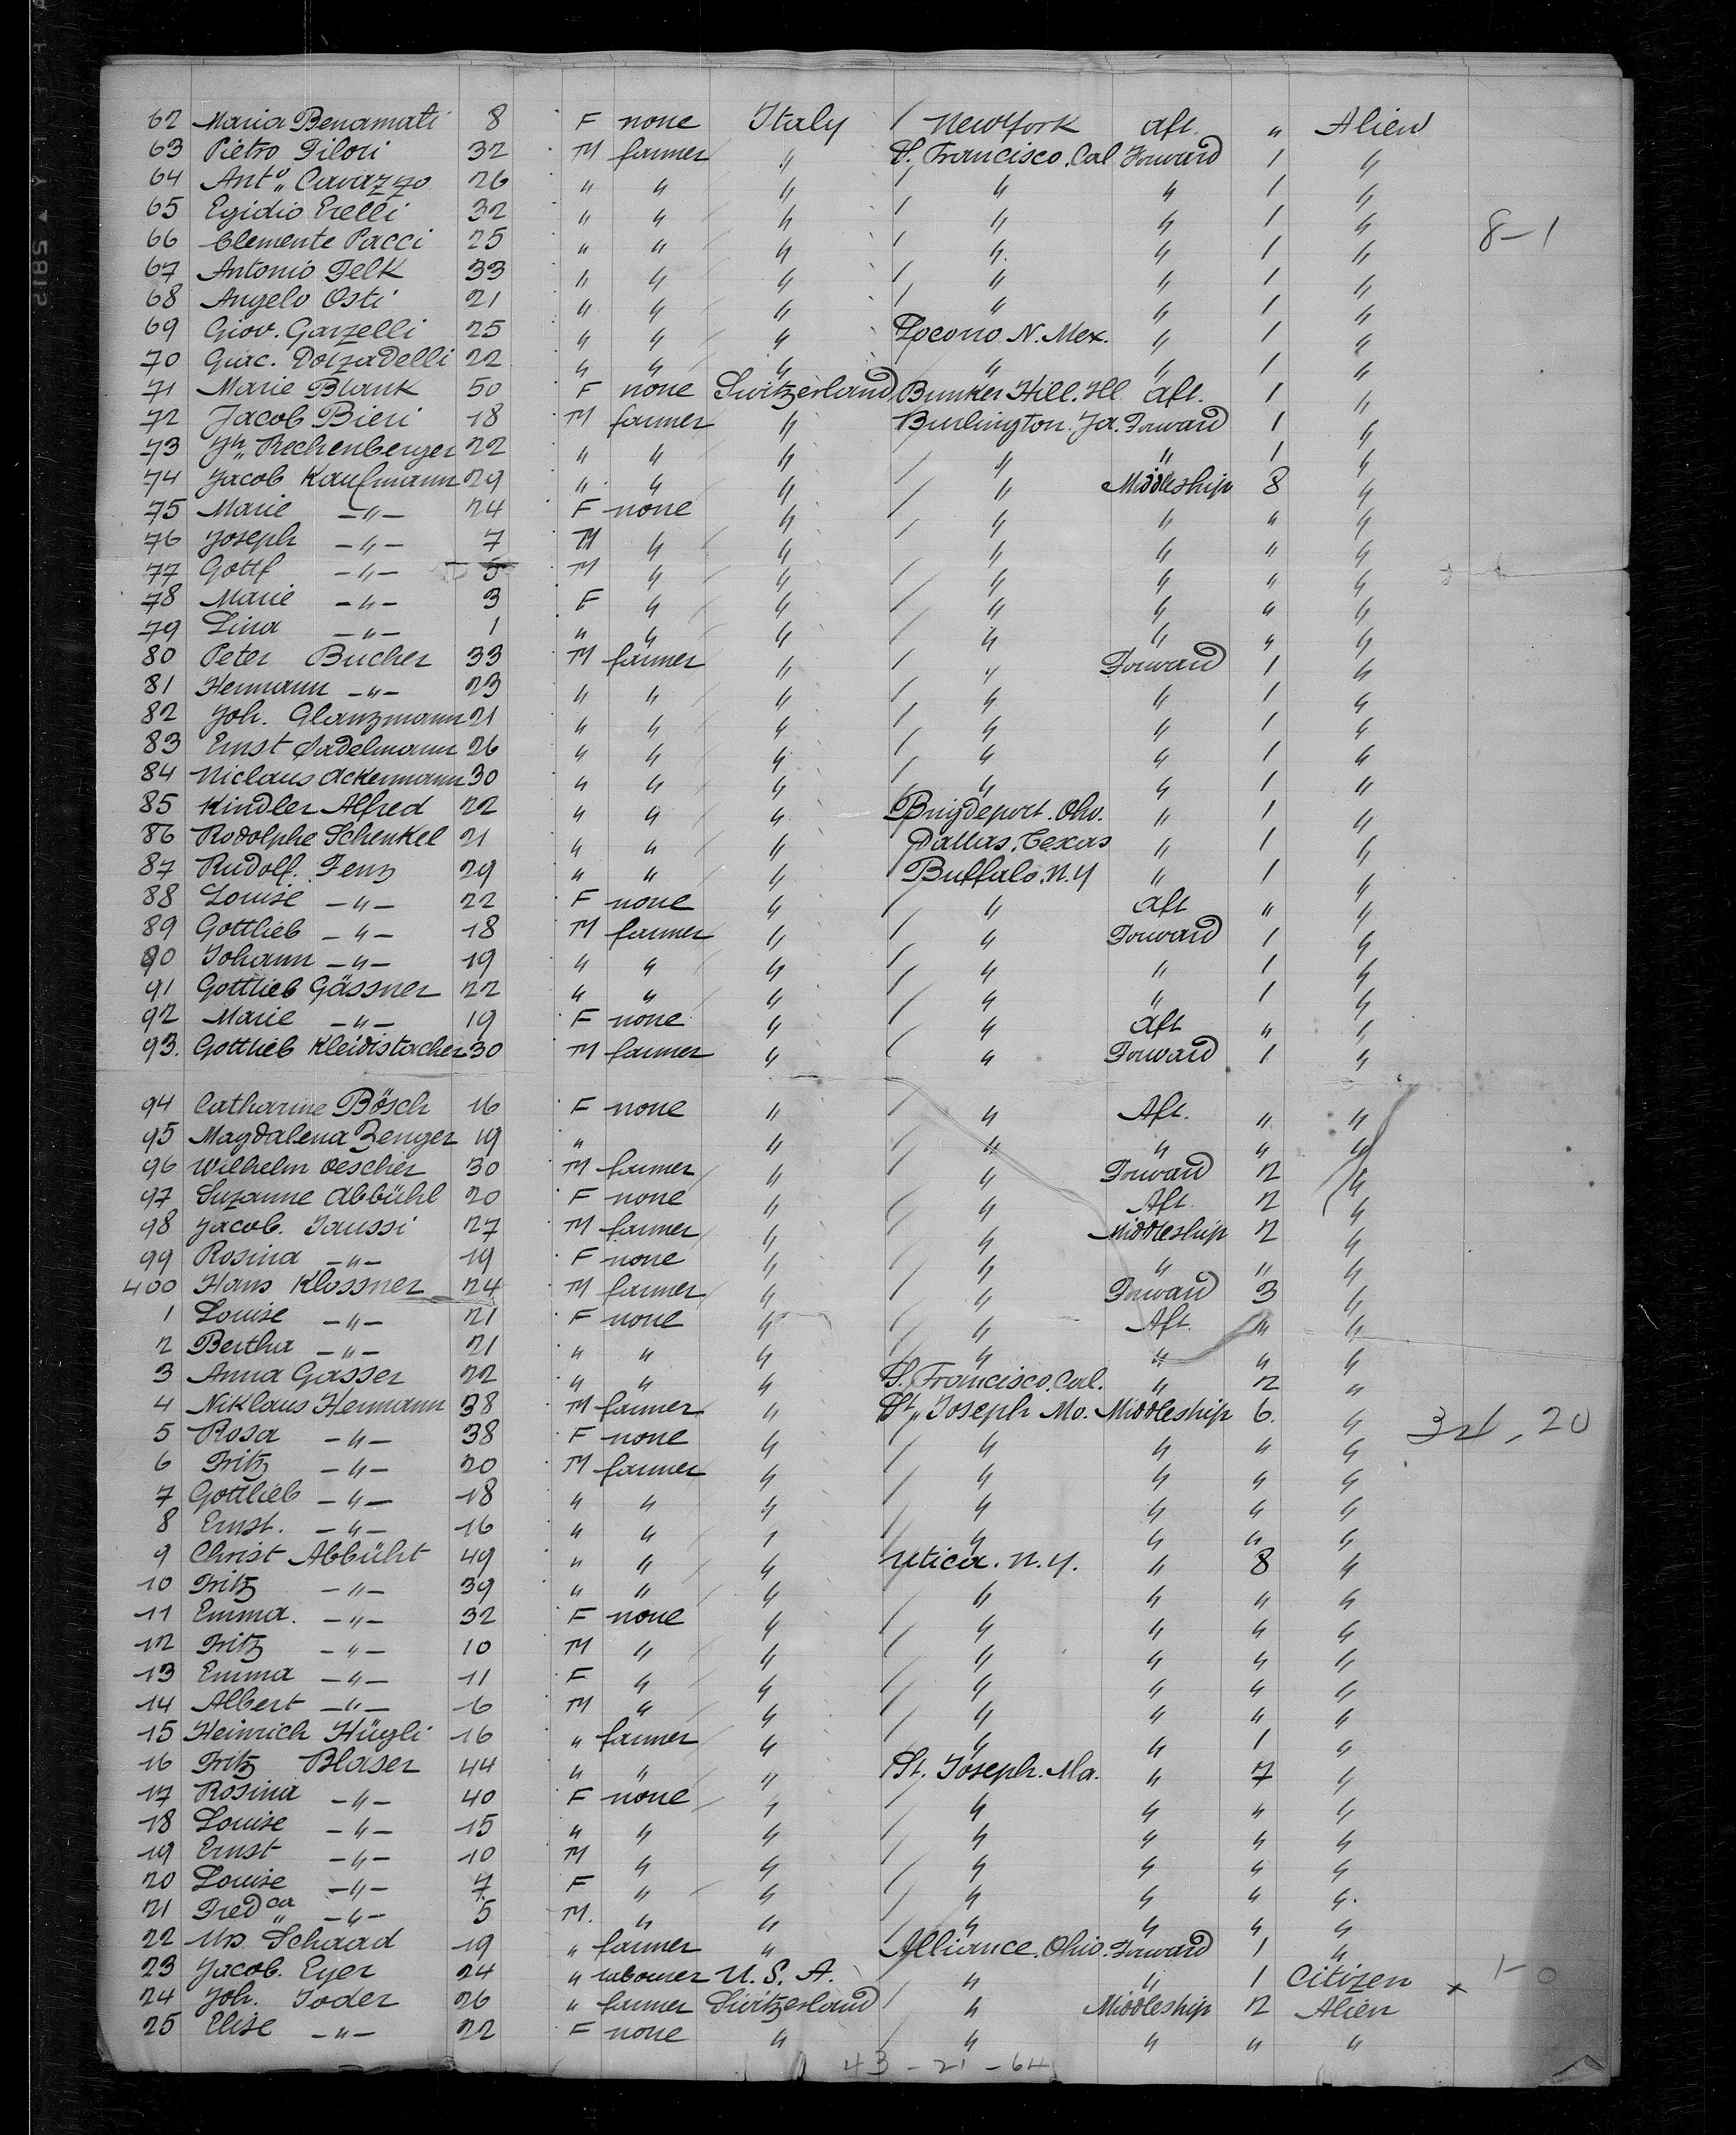 62 Maria Benamati 8 F none Italy / New York aft. " Alien
63 Pietro Filori 32 M farmer " S. Francisco. Cal Forward 1 "
64 Ant.o Cavazzo 26 " " " / " " 1 "
65 Egidio Erelli 32 " " " / " " 1 "
8-1
66 Clemente Pacci 25 " " " / " " 1 "
67 Antonio Felk 33 " " " / " " 1 "
68 Angelo Osti 21 " " " / " " 1 "
69 Giov. Garzelli 25 " " " Socorro N. Mex. " 1 "
70 Giac. Dolzadelli 22 " " " " " 1 "
71 Marie Blank 50 F none Switzerland Bunker Hill. Ill aft. 1 "
72 Jacob Bieri 18 M farmer " Burlington. Ja. Forward 1 "
73 Jh. Rechenberger 22 " " " / " " 1 "
74 Jacob Kaufmann 29 " " " / " Middleship 8 "
75 Marie -"- 24 F none " / " " " "
76 Joseph -"- 7 M " " / " " " "
77 Gottf -"- 5 M " " / " " " "
78 Marie -"- 3 F " " / " " " "
79 Lina -"- 1 " " " / " " " "
80 Peter Bucher 33 M farmer " / " Forward 1 "
81 Hermann -"- 23 " " " / " " 1 "
82 Joh. Glanzmann 21 " " " / " " 1 "
83 Ernst Stadelmann 26 " " " / " " 1 "
84 Niclaus Ackermann 30 " " " / " " 1 "
85 Kindler Alfred 22 " " " Brigdeport. Oho. " 1 "
86 Rodolphe Schenkel 21 " " " Dallas. Texas " 1 "
87 Rudolf. Fenz 29 " " " Buffalo. N.Y " 1 "
88 Louise -"- 22 F none " / " aft " "
89 Gottlieb -"- 18 M farmer " / " Forward 1 "
90 Johann -"- 19 " " " / " " 1 "
91 Gottlieb Gässner 22 " " " / " " 1 "
92 Marie -"- 19 F none " / " aft " "
93. Gottlieb Kleidistacher 30 M farmer " / " Forward 1 "
94 Catharine Bösch 16 F none " / " Aft. " "
95 Magdalena Zenger 19 " " / " " " "
96 Wilhelm Oescher 30 M farmer " / " Forward 2 "
97 Suzanne Abbühl 20 F none " / " Aft. 2 "
98 Jacob. Jaussi 27 M farmer " / " Middleship 2 "
99 Rosina -"- 19 F none " / " " " "
400 Hans Klossner 24 M farmer " / " Forward 3 "
1 Louise -"- 21 F none " / " Aft. " "
2 Bertha -"- 21 " " " / " " " "
3 Anna Gasser 22 " " " S. Francisco. Cal. " 2 "
4 Niklaus Hermann 38 M farmer " St. Joseph Mo. Middleship 6. "
5 Rosa -"- 38 F none " / " " " "
6 Fritz -"- 20 M farmer " / " " " "
7 Gottlieb -"- 18 " " " / " " " "
8 Ernst. -"- 16 " " " / " " " "
9 Christ Abbüht 49 " " " Utica. N.Y. " 8 "
10 Fritz -"- 39 " " " / " " " "
11 Emma. -"- 32 F none " / " " " "
12 Fritz -"- 10 M " " / " " " "
13 Emma -"- 11 F " " / " " " "
14 Albert -"- 6 M " " / " " " "
15 Heinrich Hügli 16 " farmer " / " " 1 "
16 Fritz Blaser 44 " " " St. Joseph. Mo. " 7 "
17 Rosina -"- 40 F none " / " " " "
18 Louise -"- 15 " " " / " " " "
19 Ernst -"- 10 M " " / " " " "
20 Louise -"- 7 F " " / " " " "
21 Fredca -"- 5 M. " " / " " " "
22 Urs Schaad 19 " farmer " Alliance. Ohio. Forward 1 "
23 Jacob. Eyer 24 " labourer U.S.A. / " " 1 Citizen x 1-0
24 Joh. Joder 26 " farmer Switzerland / " Middleship 2 Alien
25 Elise -"- 22 F none " / " " " "
43 - 21 - 64